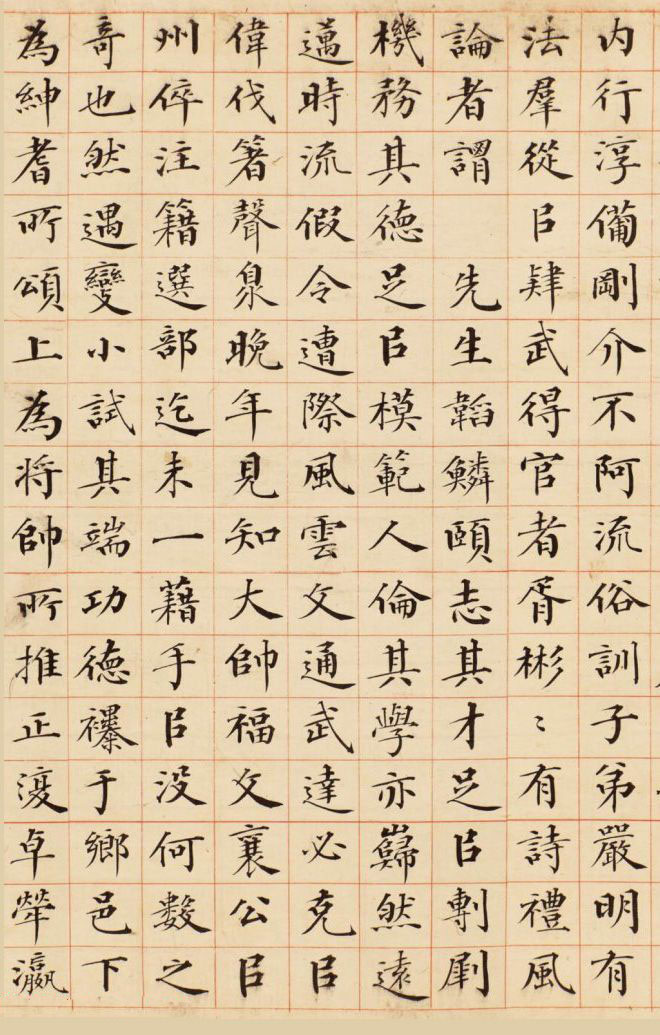 内行淳備剛介不阿流俗訓子弟嚴明有
法羣從㠯肄武得官者胥彬〻有詩禮風
論者謂 先生韜鱗頤志其才足㠯剸
機務其德足㠯模範人倫其學亦巋然遠
邁時流假令遭際風雲文通武達必克㠯
偉伐箸聲臮晚年見知大帥福文襄公㠯
州倅注籍選部迄未一藉手㠯没何數之
奇也然遇變小試其端功德襮于鄉邑下
為紳耆所頌上為將帥所推正復卓犖瀛